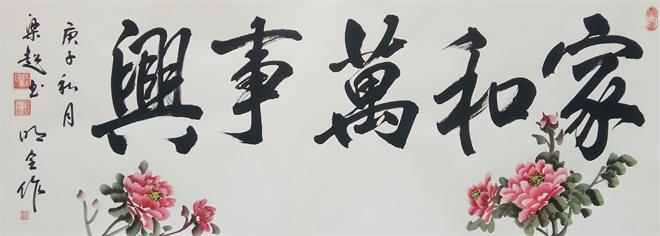 家和萬事興
庚子秋月
梁超书
明全作